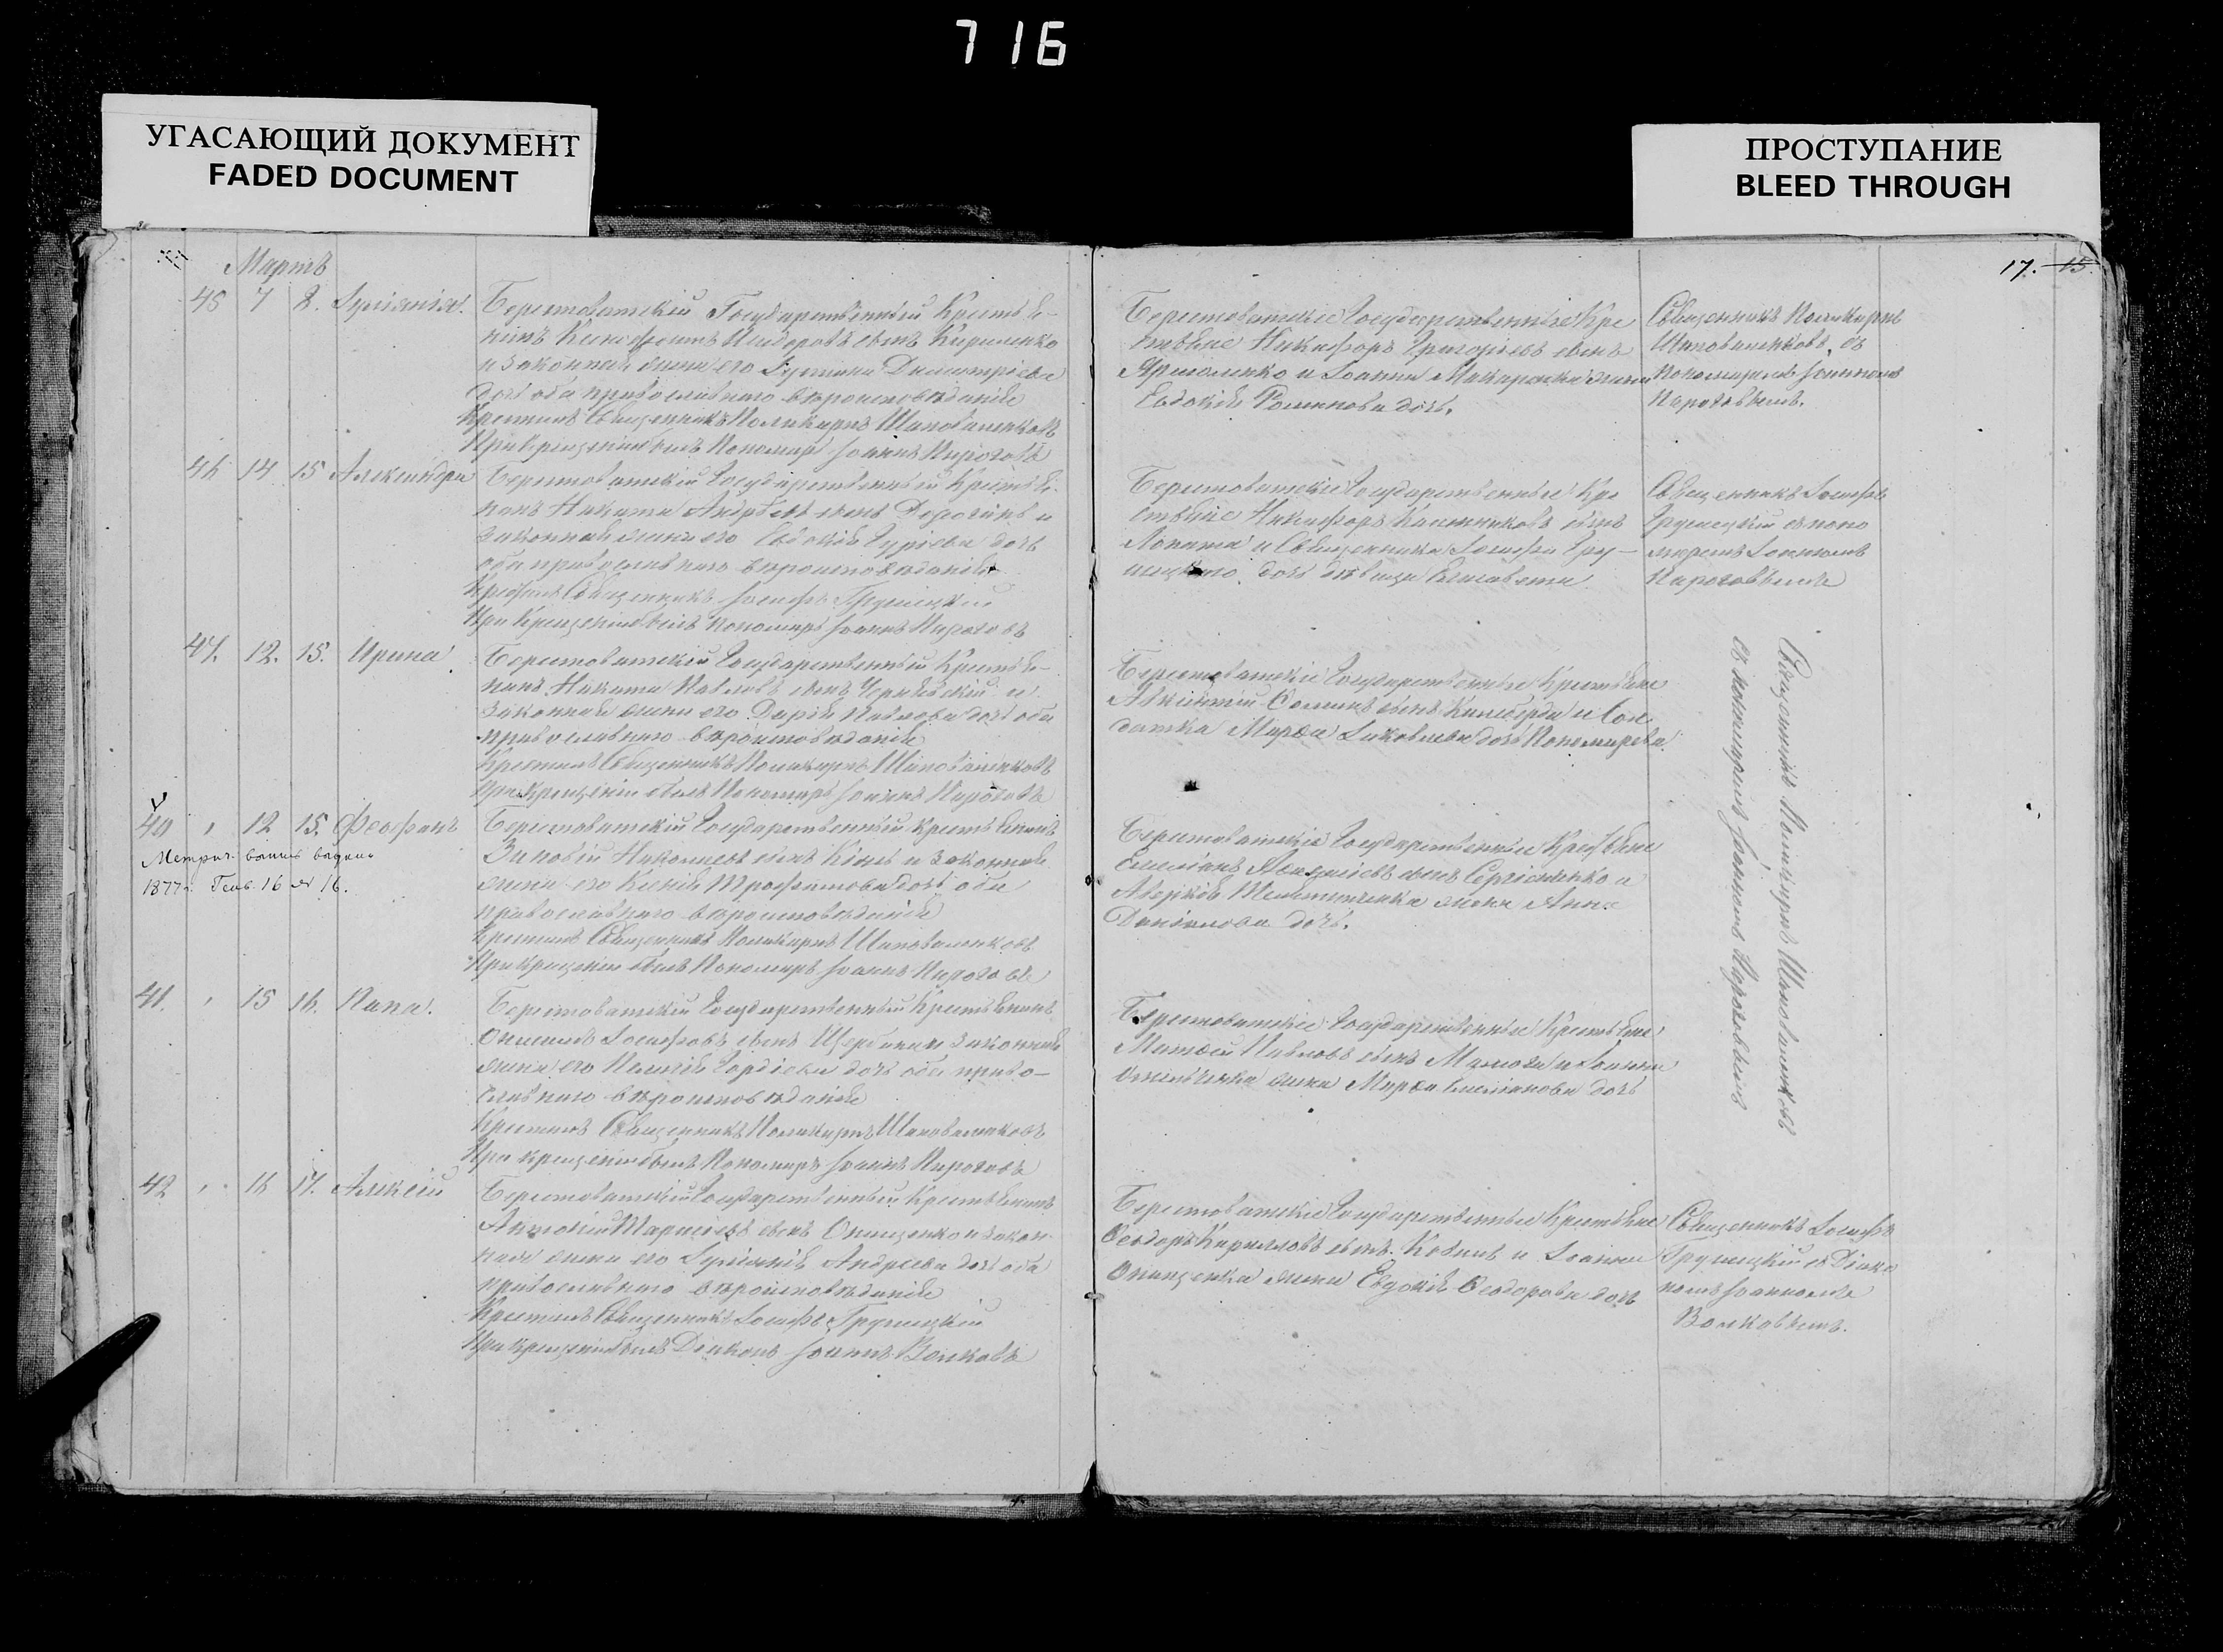 716
УГАСАЮЩИЙ ДОКУМЕНТ
FADED DOCUMENT
ПРОСТУПАНИЕ
BLEED THROUGH
17. 15.
Мартъ
45 7 8. Іуліанія.
Берестоватскій Государственный Крестья-
нинъ Ксенофонтъ сынъ Кириленко
и законная жена его Димитріева
дочь оба православнаго вѣроисповѣданія
Крестилъ Священникъ Поликарпъ Шаповаленковъ
При крещеніи былъ Пономарь Іоаннъ Пироговъ
Берестоватскіе Государственные Кре
стьяне Никифоръ Григорьевъ сынъ
Ярмоленко и Іоанна Макаренка жена
Евдокія Романова дочь.
Священникъ Поликарпъ
Шаповаленковъ съ
Пономаремъ Іоанномъ
Пироговымъ.
46 14 15 Александра
Берестоватскій Государственный Крестья-
нинъ Никита Андреевъ сынъ и
законная жена его Евдокія Гуріева дочь
оба православнаго вѣроисповѣданія
Крестилъ Священникъ Іосифъ Грушецкій
При Крещеніи былъ Пономарь Іоаннъ Пироговъ
Берестоватскіе Государственные Кре
стьяне Никифоръ сынъ
Лопата и Священника Іосифа Гру-
шецкаго дочь дѣвица Елисавета
Священникъ Іосифъ
Грушецкій съ поно
маремъ Іоанномъ
Пироговымъ
47. 12. 15. Ирина
Берестоватскій Государственный Крестья-
нинъ Никита Павловъ сынъ и
законная жена его Дарія Павлова дочь оба
православнаго вѣроисповѣданія
Крестилъ Священникъ Поликарпъ Шаповаленковъ
При Крещеніи былъ Пономарь Іоаннъ Пироговъ
Берестоватскіе Государственные Крестьяне
сынъ и Сол
датка Марѳа Іаковлева дочь Пономарева
Священникъ Поликарпъ Шаповаленковъ
съ пономаремъ Іоанномъ Пироговымъ
40 , 12 15. Феофанъ
Метрич. выпись выдана
1877 г. Генв. 16 № 16.
Берестоватскій Государственный Крестьянинъ
Зиновій Николаевъ сынъ и законная
жена его Ксенія Трофимова дочь оба
православнаго вѣроисповѣданія
Крестилъ Священникъ Поликарпъ Шаповаленковъ
При крещеніи былъ Пономарь Іоаннъ Пироговъ
Берестоватскіе Государственные Крестьяне
Емеліанъ сынъ Сергіенко и
жена Анна
Даніилова дочь.
41. , 15 16. Папа.
Берестоватскій Государственный Крестьянинъ
Онисимъ Іосифовъ сынъ Щербина и законная
жена его Пелагія Гордіева дочь оба право-
славнаго вѣроисповѣданія
Крестилъ Священникъ Поликарпъ Шаповаленковъ
При крещеніи былъ Пономарь Іоаннъ Пироговъ
Берестоватскіе Государственные Крестьяне
Матѳей Павловъ сынъ и Іоанна
жена Марѳа Емеліанова дочь
42 , 16 17. Алексій
Берестоватскій Государственный Крестьянинъ
Антоній сынъ Онищенко и закон-
ная жена его Іуліанія Андреева дочь оба
православнаго вѣроисповѣданія
Крестилъ Священникъ Іосифъ Грушецкій
При крещеніи былъ Діаконъ Іоаннъ Волковъ
Берестоватскіе Государственные Крестьяне
Ѳеодоръ Кирилловъ сынъ и Іоанна
Онищенка жена Евдокія Ѳеодорова дочь
Священникъ Іосифъ
Грушецкій съ Діако
номъ Іоанномъ
Волковымъ.